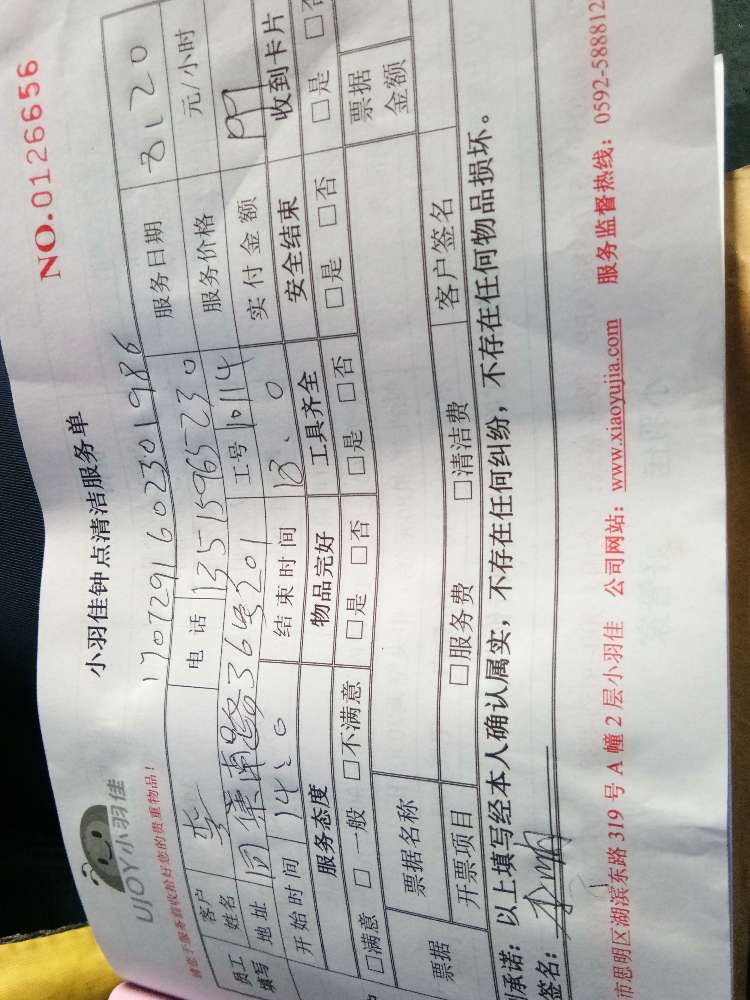 NO.0126656
小羽佳钟点清洁服务单
UJOY小羽佳
请您于服务前收拾好您的贵重物品！
1707291602301986
员工填写
客户姓名 李 电话 13515965230 服务日期 8.120
地址 36号201 工号 10114 服务价格 元/小时
开始时间 结束时间 实付金额 99
服务态度 物品完好 工具齐全 安全结束 收到卡片
□满意 □一般 □不满意 □是 □否 □是 □否 □是 □否 □是 □否
票据 票据名称 票据金额
开票项目 □服务费 □清洁费 客户签名
承诺：以上填写经本人确认属实，不存在任何纠纷，不存在任何物品损坏。
签名：
市思明区湖滨东路 319 号 A 幢 2 层小羽佳 公司网站：www.xiaoyujia.com 服务监督热线：0592-588812